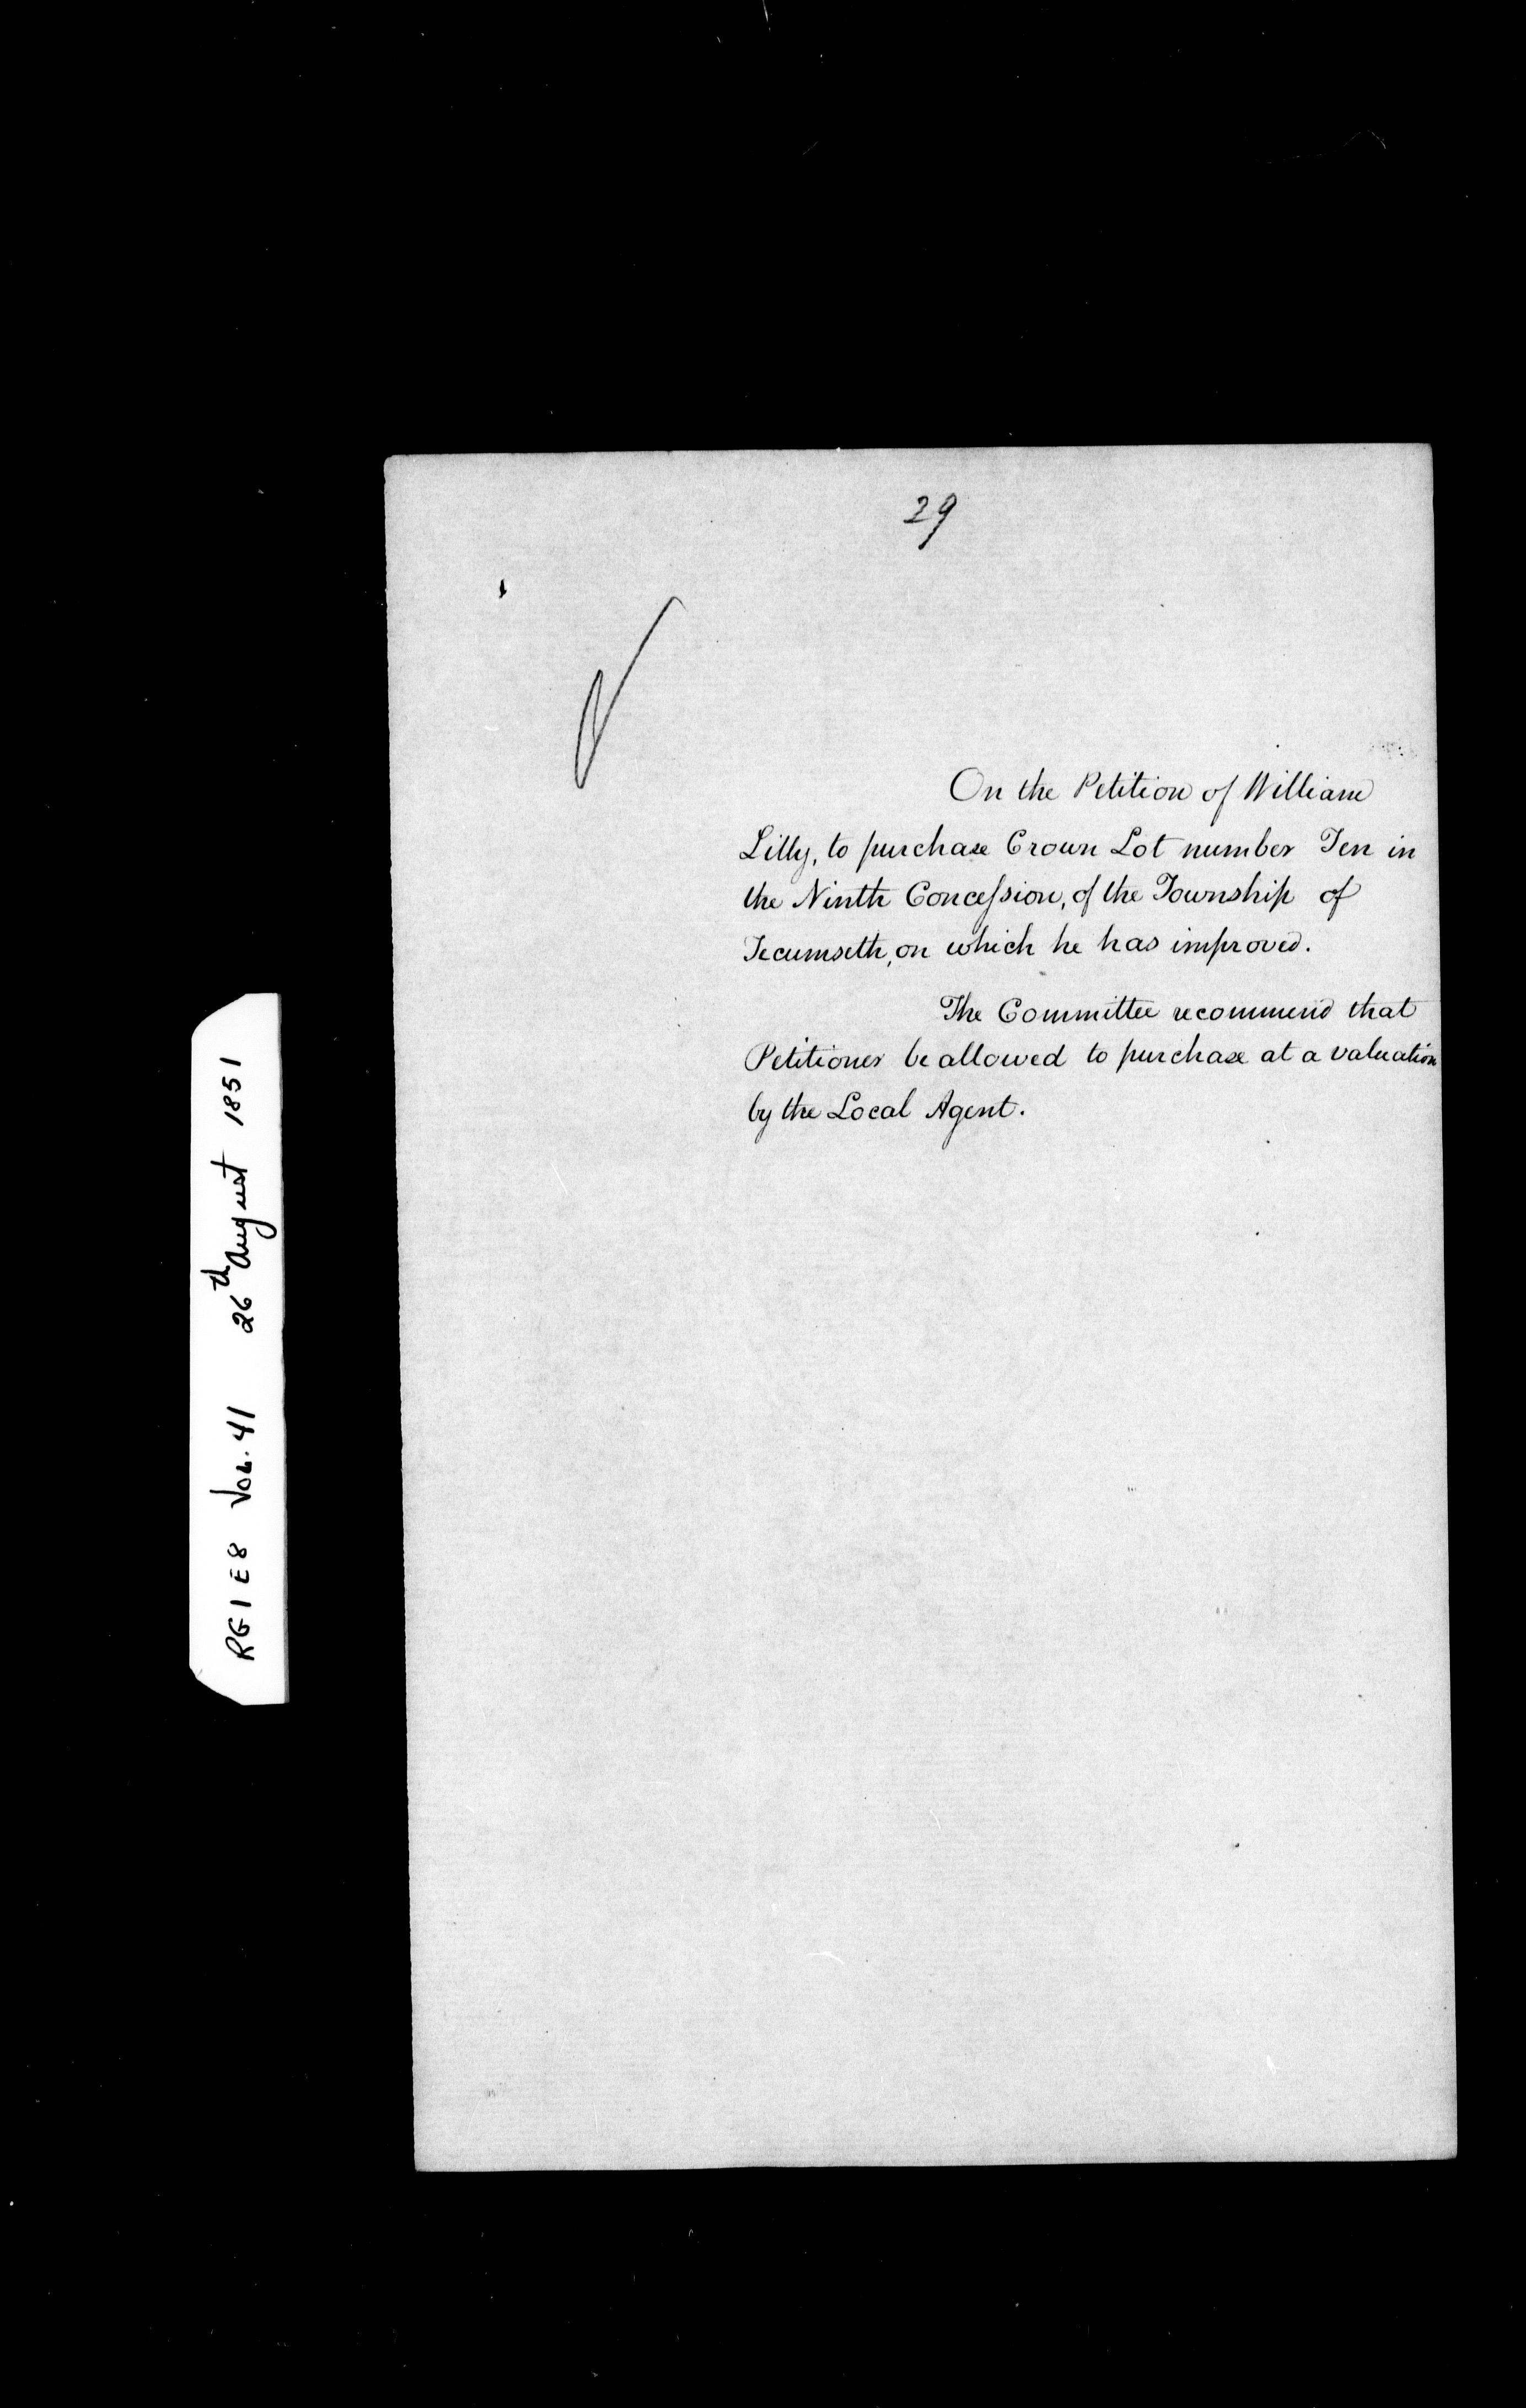 29
On the Petition of William
Lilly, to purchase Crown Lot number Ten in
the Ninth Concession, of the Township of
Tecumseth, on which he has improved.
The Committee recommend that
Petitioner be allowed to purchase at a valuation
by the Local Agent.
RG1 E8 Vol. 41 26th August 1851